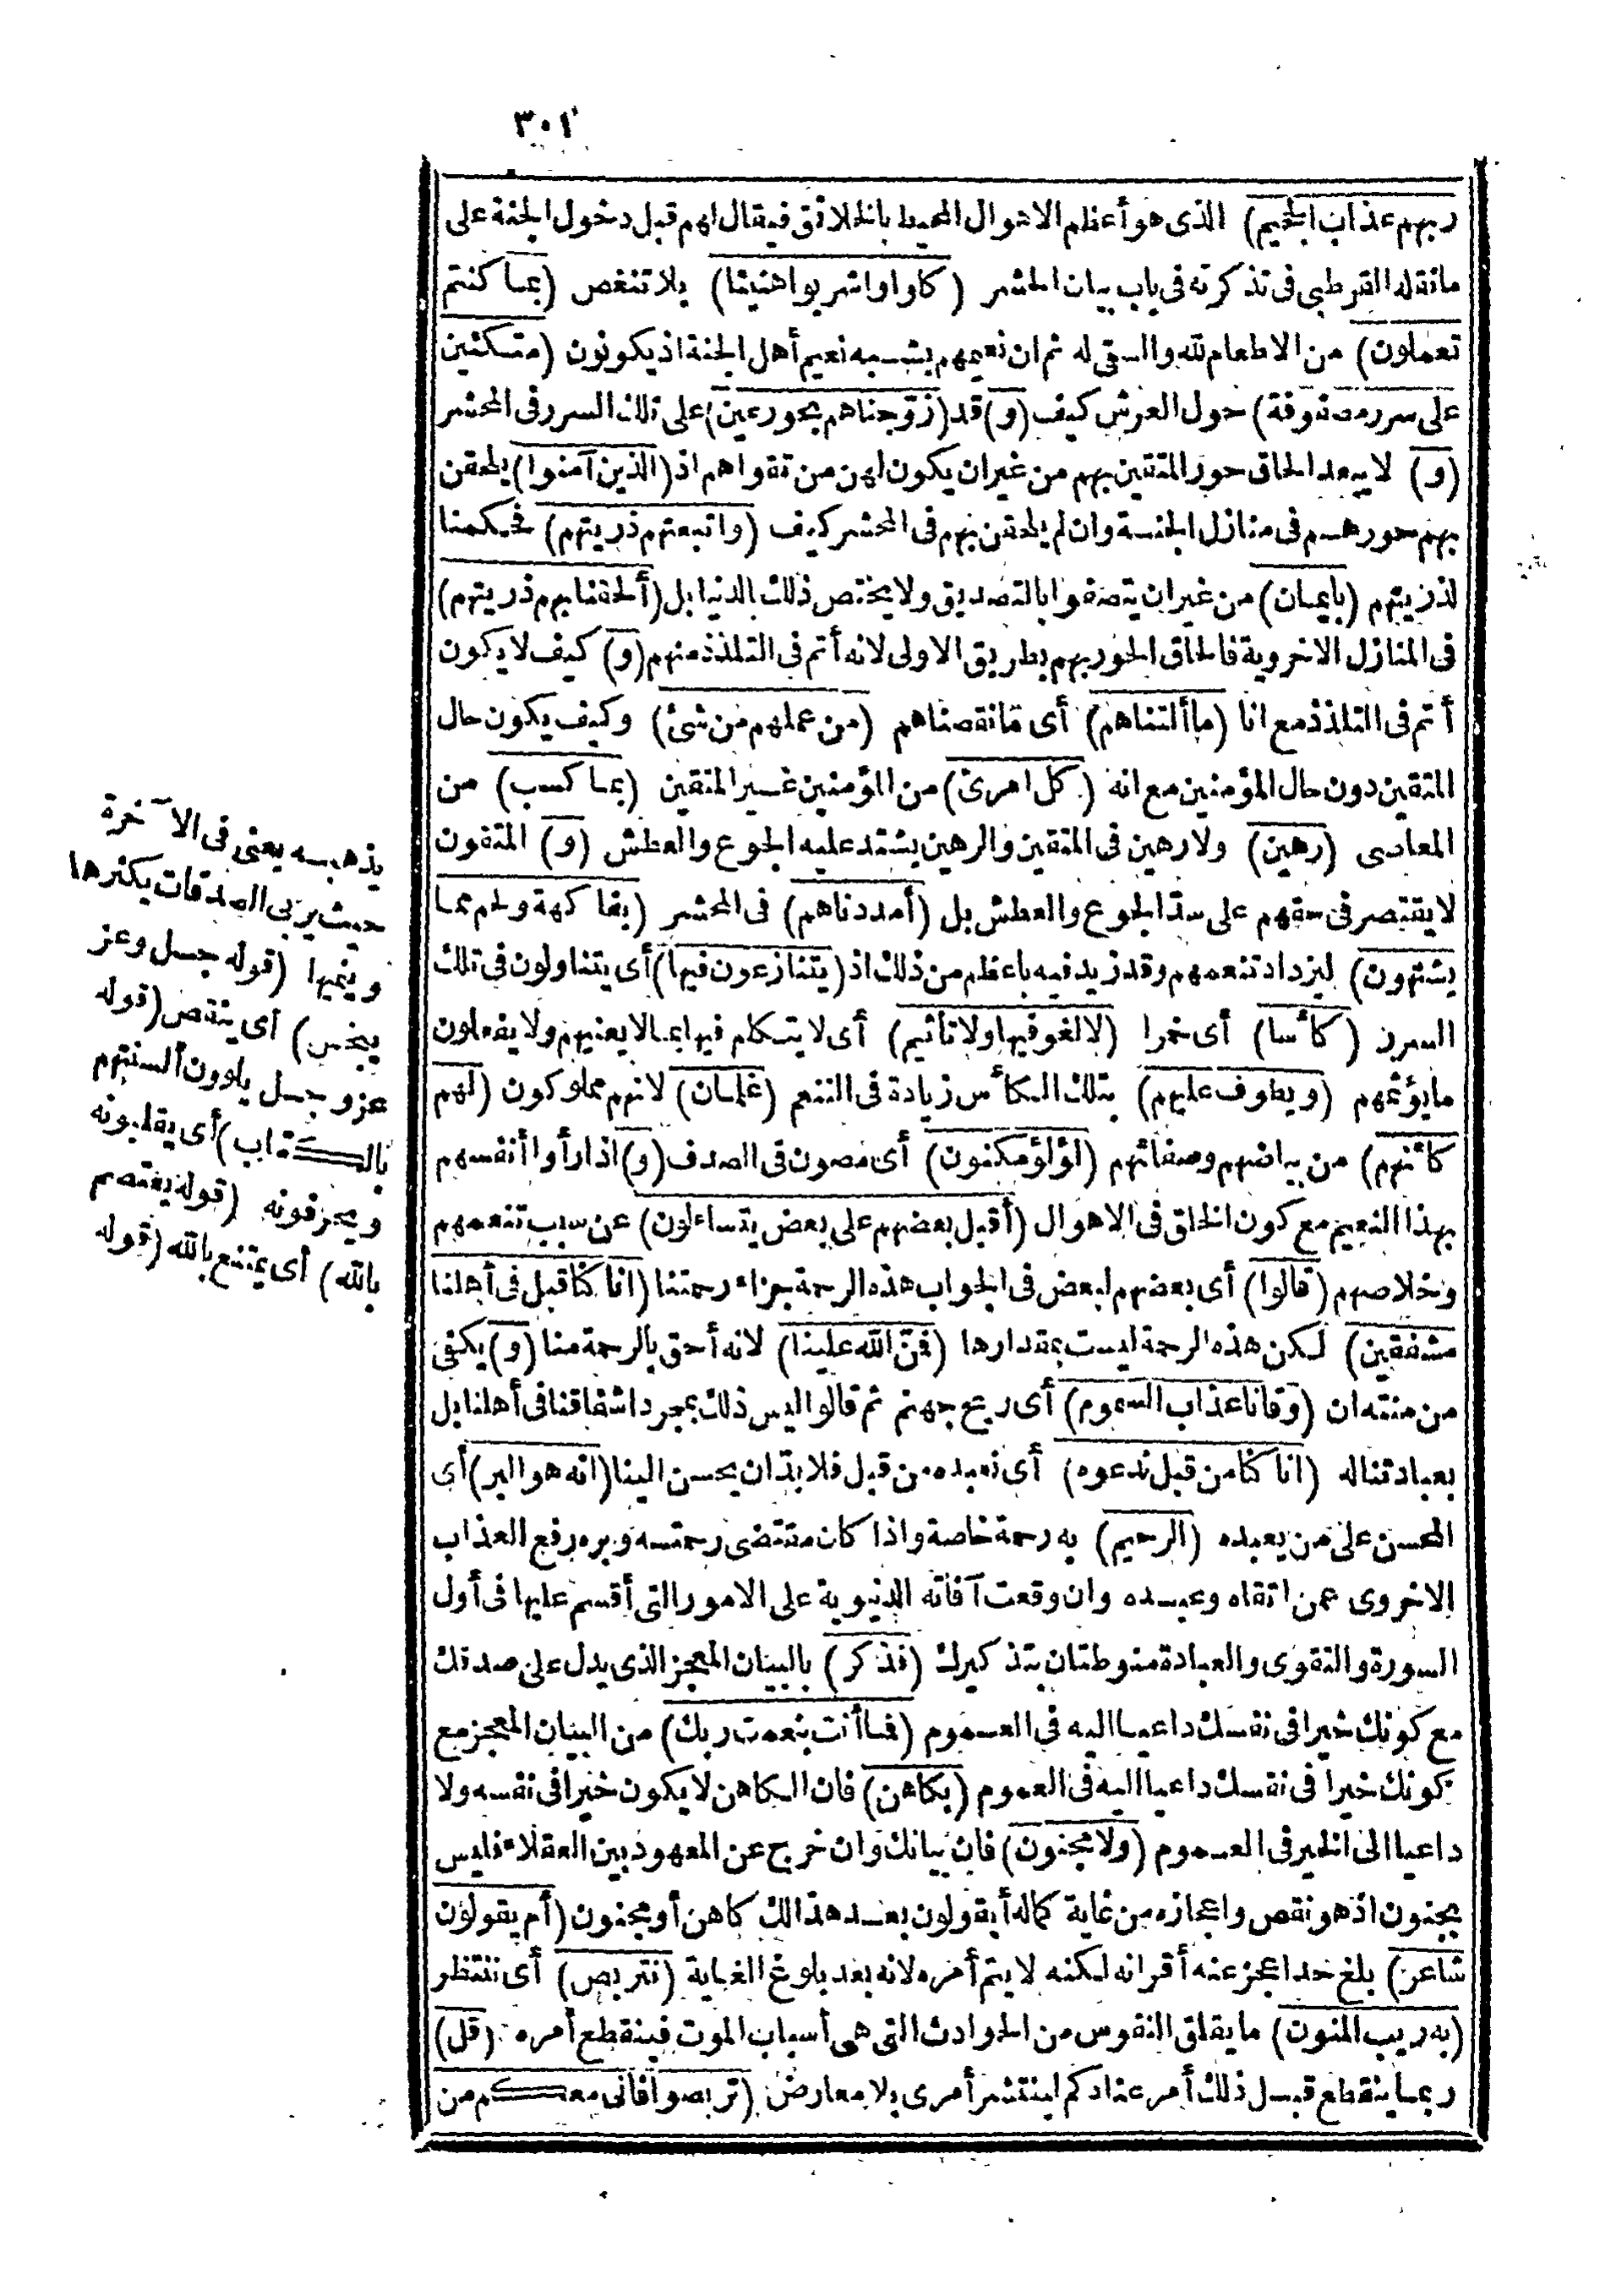 ٣٠١
ربهم عذاب الجحيم) الذى هو أعظم الاهوال المحيط بالخلائق فيقال لهم قبل دخول الجنة على
ما نقله القرطبى فى تذكرته فى باب بيان الحشر (كلوا واشربوا هنيئا) بلا تنغص (بما كنتم
تعملون) من الاطعام لله والسقى له ثم ان نعيمهم يشبه نعيم أهل الجنة اذ يكونون (متكئين
على سرر مصفوفة) حول العرش كيف (و) قد (زوّجناهم بحور عين) على تلك السرر فى المحشر
(و) لا يبعد الحاق حور المتقين بهم من غير ان يكون لهن من تقواهم اذ (الذين آمنوا) يلحقن
بهم حورهم فى منازل الجنة وان لم يلحقن بهم فى المحشر كيف (واتبعتهم ذريتهم) فحكمنا
لذريتهم (بايمان) من غير ان يتصفوا بالتصديق ولا يختص ذلك بالدنيا بل (ألحقنا بهم ذريتهم)
فى المنازل الاخروية فالحاق الحور بهم بطريق الاولى لانه أتم فى التلذذ منهم (و) كيف لا يكون
أتم فى التلذذ مع انا (ما ألتناهم) أى ما نقصناهم (من عملهم من شئ) وكيف يكون حال
المتقين دون حال المؤمنين مع انه (كل امرئ) من المؤمنين غير المتقين (بما كسب) من
المعاصى (رهين) ولا رهين فى المتقين والرهين يشتد عليه الجوع والعطش (و) المتقون
لا يقتصر فى حقهم على سدّ الجوع والعطش بل (أمددناهم) فى المحشر (بفاكهة ولحم مما
يشتهون) ليزداد تنعمهم وقد زيد فيه باعظم من ذلك اذ (يتنازعون فيها) أى يتناولون فى تلك
السرر (كأسا) أى خمرا (لا لغو فيها ولا تأثيم) أى لا يتكلم فيها بما لا يعنيهم ولا يفعلون
ما يؤثمهم (ويطوف عليهم) بتلك الكأس زيادة فى التنعم (غلمان) لانهم مملوكون (لهم
كأنهم) من بياضهم وصفائهم (لؤلؤ مكنون) أى مصون فى الصدف (و) اذا رأوا أنفسهم
بهذا النعيم مع كون الخلق فى الاهوال (أقبل بعضهم على بعض يتساءلون) عن سبب تنعمهم
وخلاصهم (قالوا) أى بعضهم لبعض فى الجواب هذه الرحمة جزاء رحمتنا (انا كنا قبل فى أهلنا
مشفقين) لكن هذه الرحمة ليست بمقدارها (فمنّ الله علينا) لانه أحق بالرحمة منا (و) يكفى
من منته ان (وقانا عذاب السموم) أى ريح جهنم ثم قالوا ليس ذلك بمجرد اشفاقنا فى أهلنا بل
بعبادتنا له (انا كنا من قبل ندعوه) أى نعبده من قبل فلا بدّ ان يحسن الينا (انه هو البر) أى
المحسن على من يعبده (الرحيم) به رحمة خاصة واذا كان مقتضى رحمته وبره رفع العذاب
الاخروى عمن اتقاه وعبده وان وقعت آفاته الدنيوية على الامور التى أقسم عليها فى أول
السورة والتقوى والعبادة منوطتان بتذكيرك (فذكر) بالبيان المعجز الذى يدل على صدقك
مع كونك خيرا فى نفسك داعيا اليه فى العموم (فما أنت بنعمت ربك) من البيان المعجز مع
كونك خيرا فى نفسك داعيا اليه فى العموم (بكاهن) فان الكاهن لا يكون خيرا فى نفسه ولا
داعيا الى الخير فى العموم (ولا مجنون) فان بيانك وان خرج عن المعهود بين العقلاء فليس
بجنون اذ هو نقص واعجازه من غاية كماله أيقولون بعد هذا لك كاهن أو مجنون (أم يقولون
شاعر) بلغ حدا عجز عنه أقرانه لكنه لا يتم أمره لانه بعد بلوغ الغاية (نتربص) أى ننتظر
(به ريب المنون) ما يقلق النفوس من الحوادث التى هى أسباب الموت فينقطع أمره (قل)
ربما ينقطع قبل ذلك أمر عنادكم لينتشر أمرى بلا معارض (تربصوا فانى معكم من
يذهبه يعنى فى الآخرة
حيث يربى الصدقات يكثرها
وينميها (قوله جل وعز
يبخس) أى ينقص (قوله
عز وجل يلوون ألسنتهم
بالكتاب) أى يقلبونه
ويحرفونه (قوله يعتصم
بالله) أى يمتنع بالله (قوله